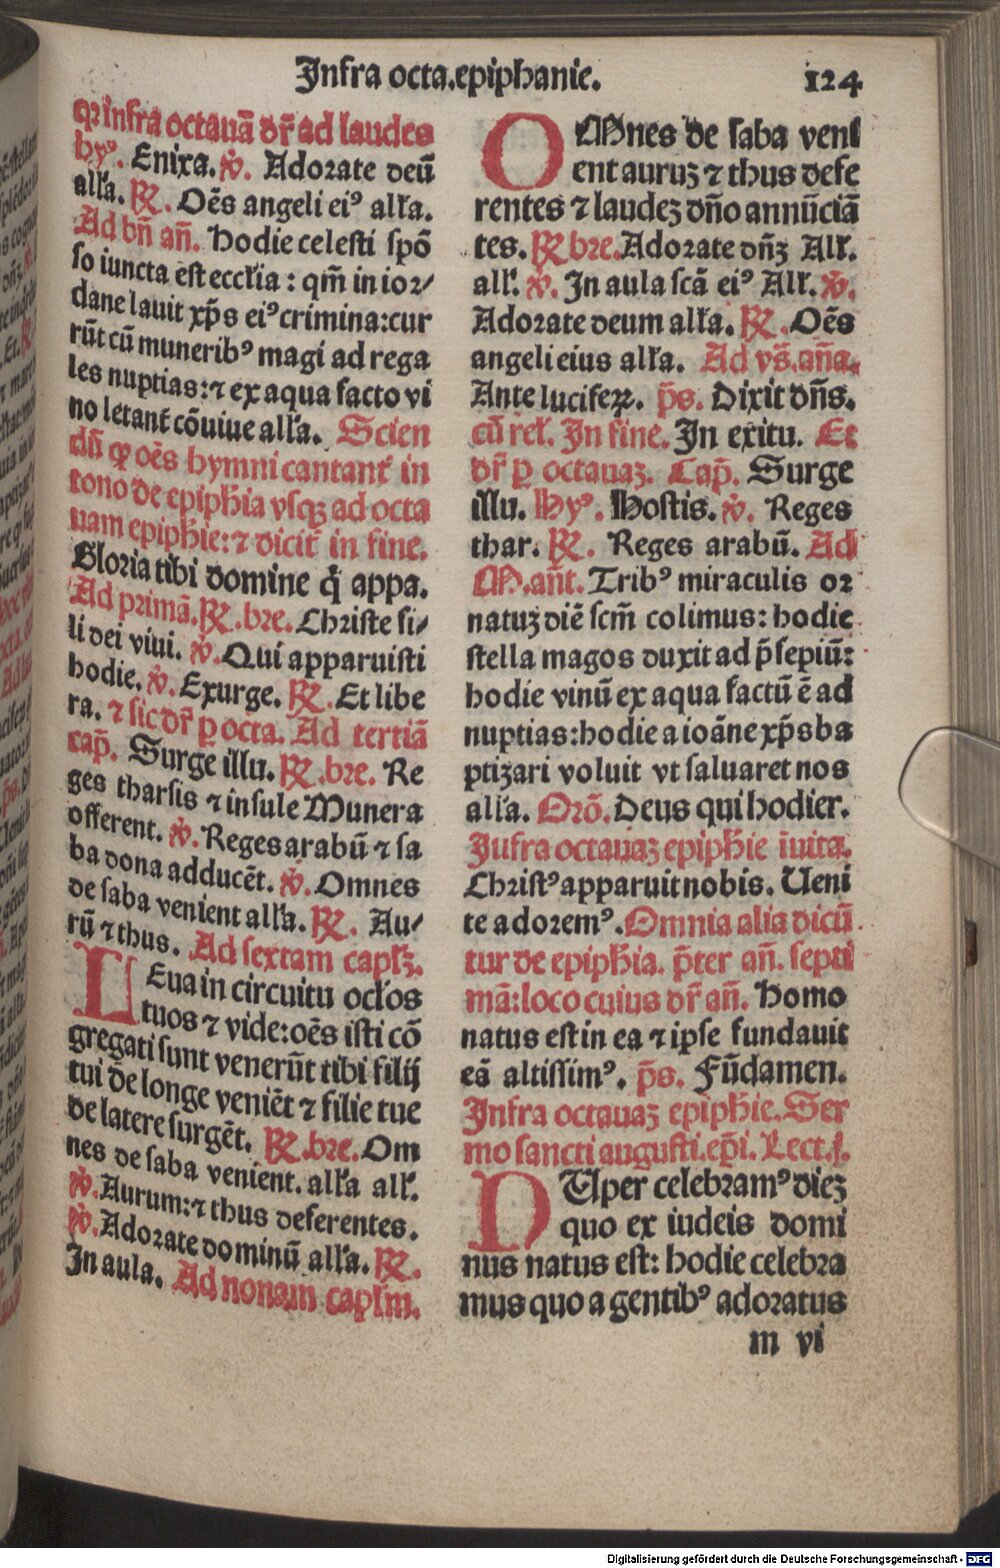 Infra octa.epiphanie.
124
qꝛ infra octauā dr̄ ad laudes
hyꝰ. Enixa. ℣. Adorate deū
alła. ℟. Oēs angeli eiꝰ alła.
Ad bn̄ an̄. Hodie celesti spō
so iuncta est ecclia : qm̄ in ior/
dane lauit xp̄s eiꝰ crimina:cur
rūt cū muneribꝰ magi ad rega
les nuptias:⁊ ex aqua facto vi
no letant̄ cōuiue alła. Scien
dū ꝙ oēs hymni cantant̄ in
tono de epiphia vsqꝫ ad octa
uam epiphie:⁊ dicit̄ in fine.
Gloria tibi domine q̄ appa.
Ad primā.℟.bre. Christe fi/
li dei viui. ℣. Qui apparuisti
hodie. ℣. Exurge. ℟. Et libe
ra. ⁊ sic dr̄ ꝑ octa. Ad tertiā
cap̄. Surge illu. ℟.bre. Re
ges tharsis ⁊ insule Munera
offerent. ℣. Reges arabū ⁊ sa
ba dona adducēt. ℣. Omnes
de saba venient alła. ℟. Au/
rū ⁊ thus. Ad sextam capłꝫ.
LEua in circuitu oclos
tuos ⁊ vide:oēs isti cō
gregati sunt venerūt tibi filij
tui de longe veniēt ⁊ filie tue
de latere surgēt. ℟.bre. Om
nes de saba venient. alła ałł.
℣. Aurum:⁊ thus deferentes.
℣. Adorate dominū alła. ℟.
In aula. Ad nonam capłm.
OMnes de saba veni
ent auruꝫ ⁊ thus defe
rentes ⁊ laudeꝫ dn̄o annūciā
tes. ℟ bre. Adorate dn̄ꝫ Ałł.
ałł. ℣. In aula scā eiꝰ Ałł. ℣.
Adorate deum alła. ℟. Oēs
angeli eius alła. Ad vs̄.an̄a.
Ante luciferꝝ. p̄s. Dixit dn̄s.
cū rel. In fine. In exitu. Et
dr̄ ꝑ octauaꝫ. Cap̄. Surge
illu. Hyꝰ. Hostis. ℣. Reges
thar. ℟. Reges arabū. Ad
M.an̄t. Tribꝰ miraculis or
natuꝫ diē scm̄ colimus: hodie
stella magos duxit ad p̄sepiū:
hodie vinū ex aqua factū ē ad
nuptias:hodie a ioāne xp̄s ba
ptizari voluit vt saluaret nos
alła. Orō. Deus qui hodier.
Infra octauaꝫ epiphie īuita.
Christꝰ apparuit nobis. Ueni
te adoremꝰ. Omnia alia dicū
tur de epiphia. p̄ter an̄. septi
mā:loco cuius dr̄ an̄. Homo
natus est in ea ⁊ ipse fundauit
eā altissimꝰ. p̄s. Fūdamen.
Infra octauaꝫ epiphie. Ser
mo sancti augusti.ep̄i. Lect.j.
NUper celebramꝰ dieꝫ
quo ex iudeis domi
nus natus est: hodie celebra
mus quo a gentibꝰ adoratus
m vi
Digitalisierung gefördert durch die Deutsche Forschungsgemeinschaft - DFG